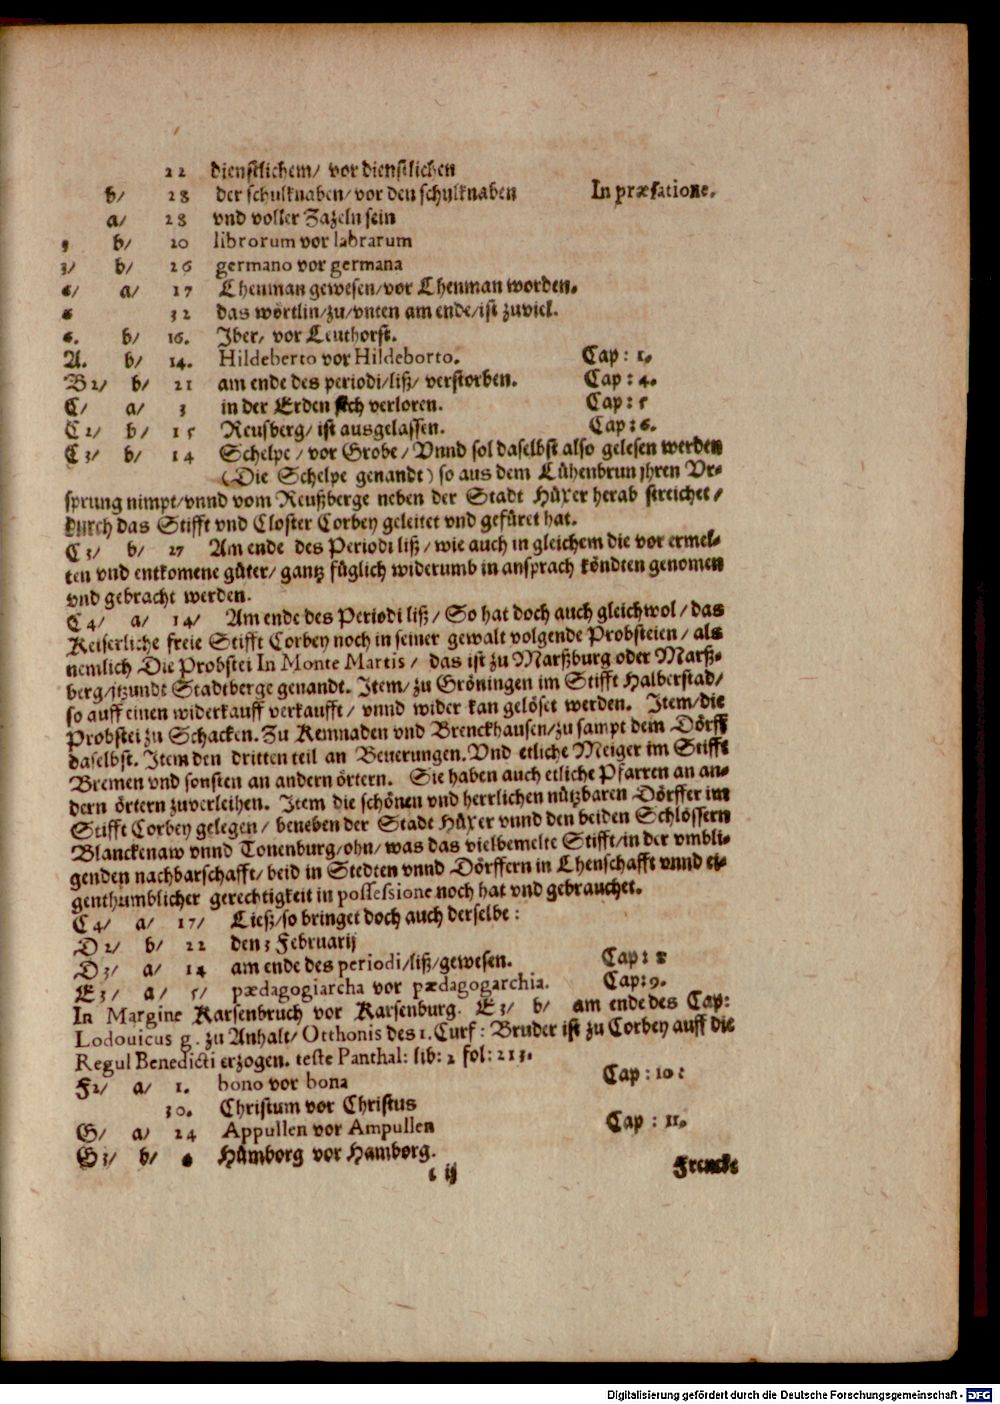 22 dienstlichem/ vor dienstlichen
b/ 28 der schulknaben/ vor den schulknaben In præfatione.
a/ 28 vnd voller Zazeln sein
b/ 20 librorum vor labrarum
3/ b/ 26 germano vor germana
a/ 17 Lhenman gewesen/ vor Lhenman worden.
32 das wörtlin/ zu/ vnten am ende/ ist zuviel.
6. b/ 16. Iber/ vor Leuthorst.
A. b/ 14. Hildeberto vor Hildeborto. Cap: 1.
B 2/ b/ 21 am ende des periodi/ liß/ verstorben. Cap: 4.
C/ a/ 3 in der Erden sich verloren. Cap: 5
C 2/ b/ 15 Reusberg/ ist ausgelassen. Cap: 6.
C 3/ b/ 14 Schelpe/ vor Grobe/ Vnnd sol daselbst also gelesen werden
(Die Schelpe genandt) so aus dem Lühenbrun jhren Vr-
sprung nimpt/ vnnd vom Reußberge neben der Stadt Hüxer herab streichet/
durch das Stifft vnd Closter Corbey geleitet vnd gefüret hat.
C 3/ b/ 27 Am ende des Periodi liß/ wie auch in gleichem die vor ermel-
ten vnd entkomene güter/ gantz füglich widerumb in ansprach köndten genomen
vnd gebracht werden.
C 4/ a/ 14/ Am ende des Periodi liß/ So hat doch auch gleichwol/ das
Keiserliche freie Stifft Corbey noch in seiner gewalt volgende Probsteien/ als
nemlich Die Probstei In Monte Martis/ das ist zu Marßburg oder Marß-
berg/ itzundt Stadtberge genandt. Item/ zu Gröningen im Stifft Halberstad/
so auff einen widerkauff verkaufft/ vnnd wider kan gelöset werden. Item/ die
Probstei zu Schacken. Zu Kemnaden vnd Brenckhausen/ zu sampt dem Dörff
daselbst. Item den dritten teil an Beuerungen. Vnd etliche Meiger im Stifft
Bremen vnd sonsten an andern örtern. Sie haben auch etliche Pfarren an an-
dern örtern zuverleihen. Item die schönen vnd herrlichen nützbaren Dörffer im
Stifft Corbey gelegen/ beneben der Stadt Hüxer vnnd den beiden Schlössern
Blanckenaw vnnd Tonenburg/ ohn/ was das vielbemelte Stifft/ in der vmbli-
genden nachbarschafft/ beid in Stedten vnnd Dörffern in Lhenschafft vnnd ei-
genthumblicher gerechtigkeit in possessione noch hat vnd gebrauchet.
C 4/ a/ 17/ Ließ/ so bringet doch auch derselbe:
D 2/ b/ 22 den 3 Februarij
D 3/ a/ 14 am ende des periodi/ liß/ gewesen. Cap: 8
E 3/ a/ 5/ pædagogiarcha vor pædagogarchia. Cap: 9.
In Margine Karsenbruch vor Karsenburg. E 3/ b/ am ende des Cap:
Lodouicus g. zu Anhalt/ Otthonis des 1. Curf: Bruder ist zu Corbey auff die
Regul Benedicti erzogen. teste Panthal: lib: 2 fol: 213.
F 2/ a/ 1. bono vor bona Cap: 10:
30. Christum vor Christus
G/ a/ 24 Appullen vor Ampullen Cap: 11.
G 3/ b/ Hümborg vor Hamborg.
c ij Frencke
Digitalisierung gefördert durch die Deutsche Forschungsgemeinschaft - DFG